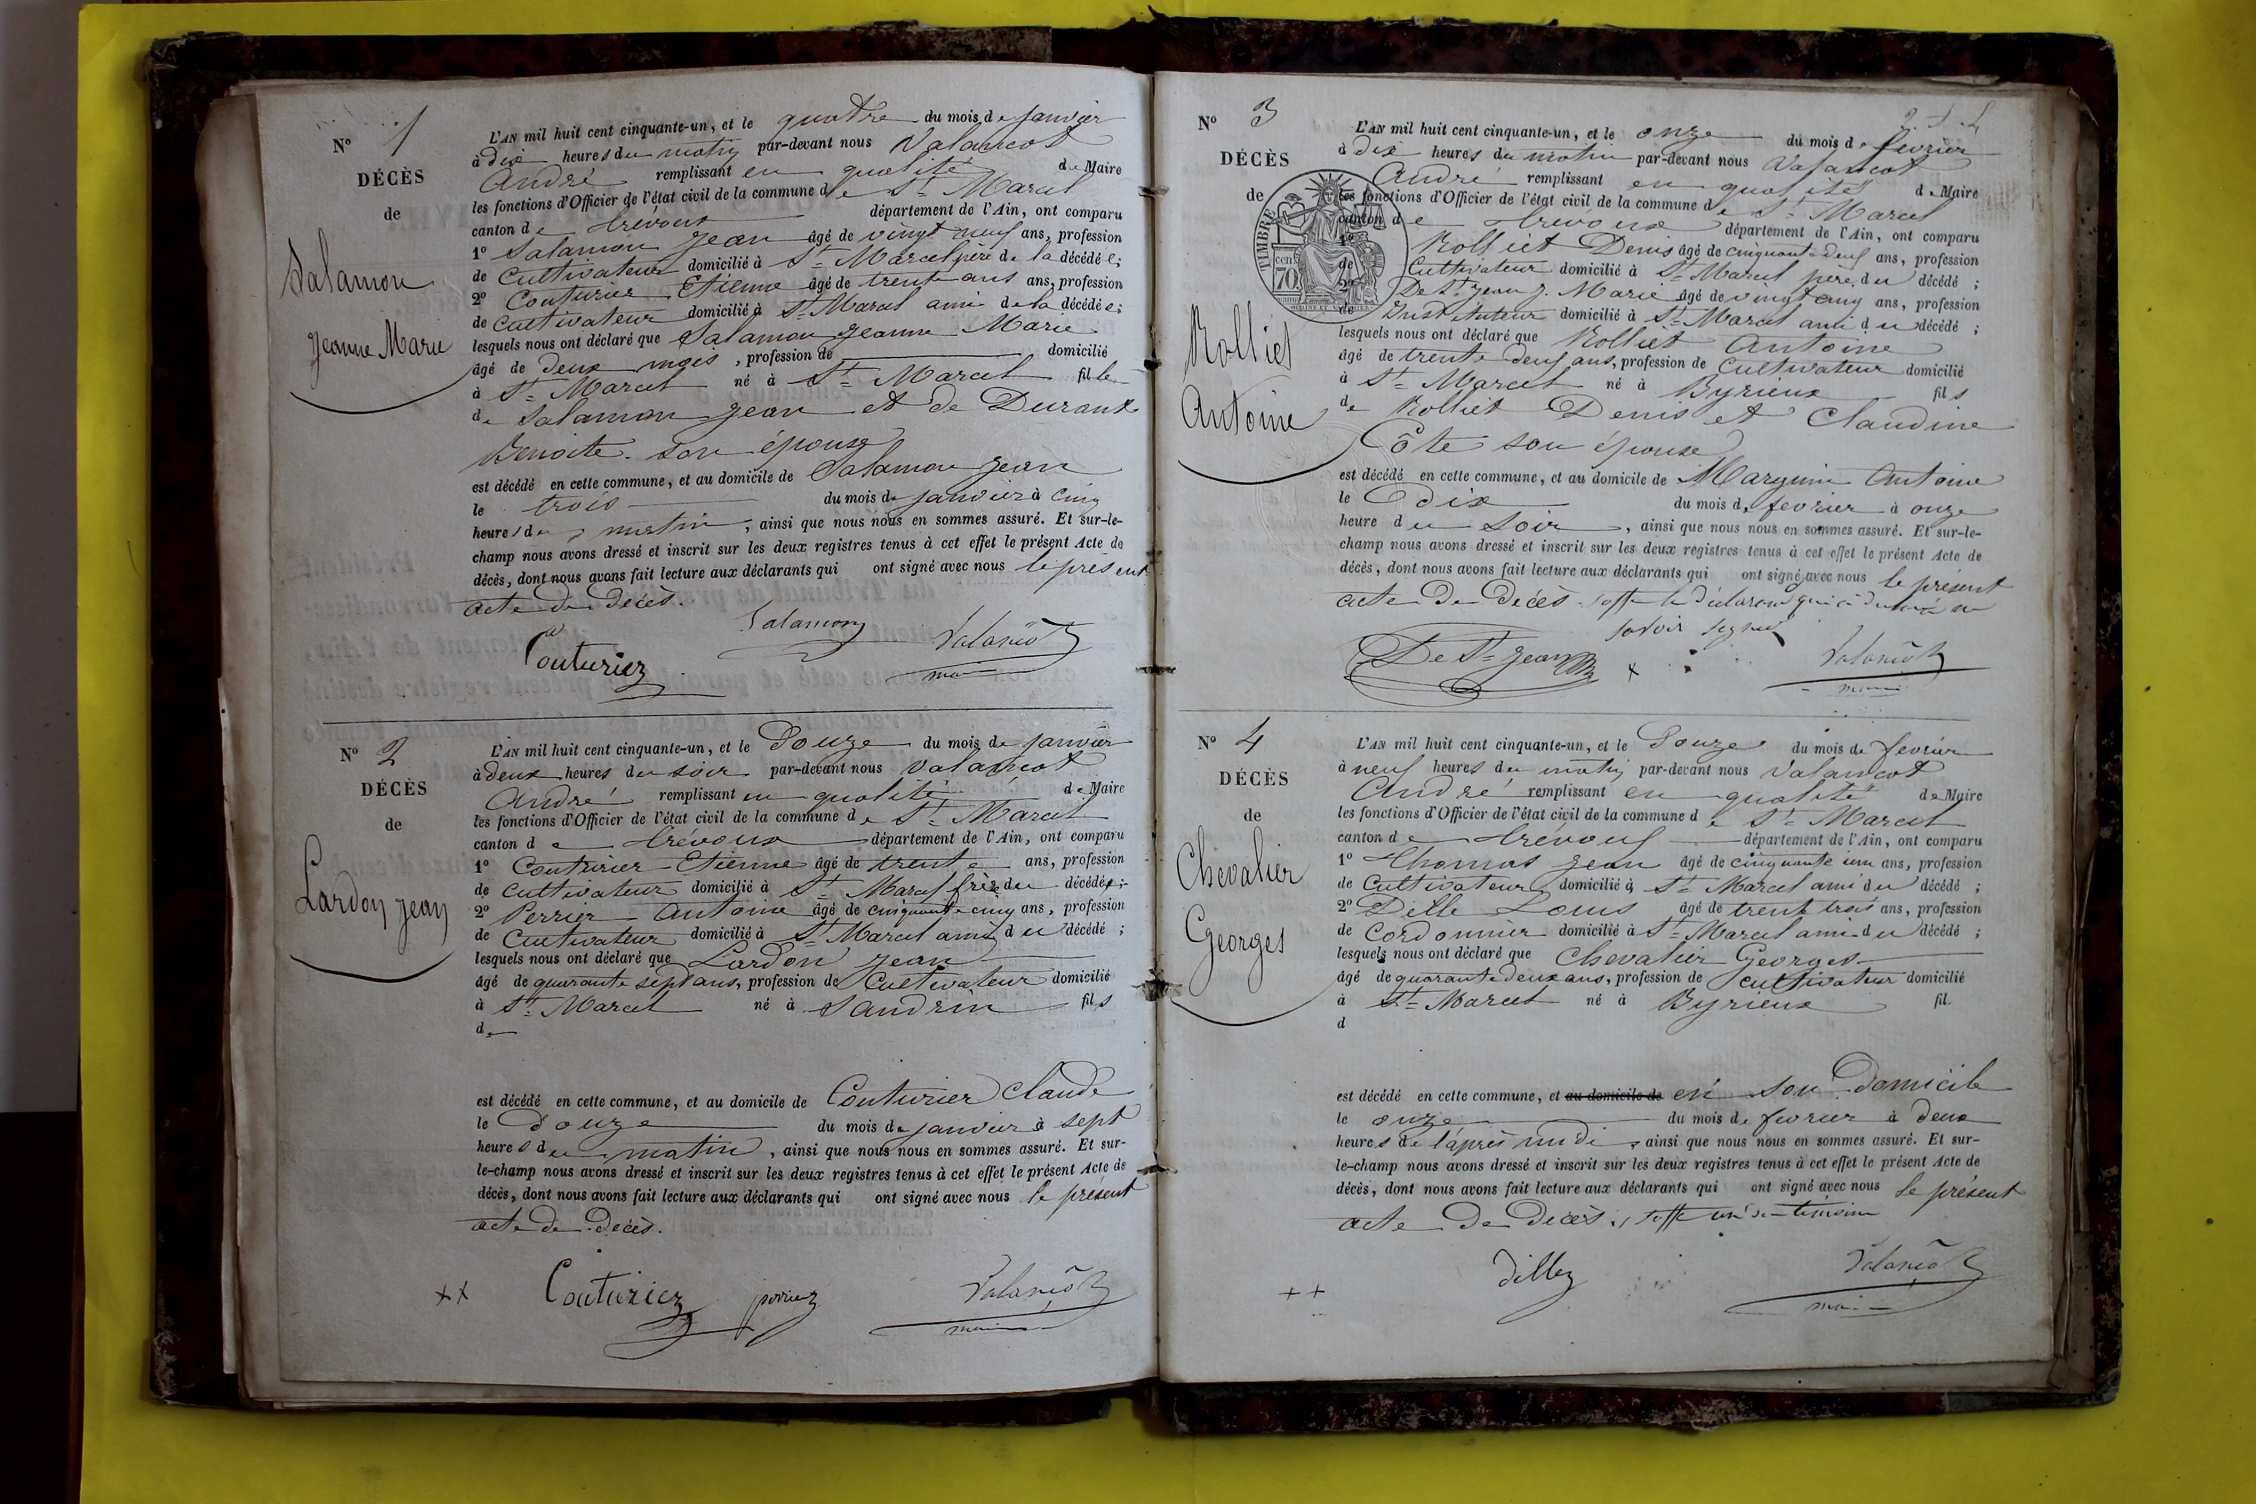 N° 1
DÉCÈS
de
Salamon
Jeanne Marie
L'AN mil huit cent cinquante-un, et le quatre du mois de janvier
à dix heures du matin par-devant nous Valancot
André remplissant en qualité de Maire
les fonctions d'Officier de l'état civil de la commune de St Marcel
canton de Trévoux département de l'Ain, ont comparu
1° Salamon Jean âgé de vingt neuf ans, profession
de Cultivateur domicilié à St Marcel père de la décédée;
2° Couturier Etienne âgé de trente ans ans, profession
de Cultivateur domicilié à St Marcel ami de la décédée;
lesquels nous ont déclaré que Salamon Jeanne Marie
âgé de deux mois, profession de domicilié
à St Marcel né à St Marcel fille
de Salamon Jean et de Durand
Benoite son épouse
est décédé en cette commune, et au domicile de Salamon Jean
le trois du mois de janvier à cinq
heures du matin, ainsi que nous nous en sommes assuré. Et sur-le-
champ nous avons dressé et inscrit sur les deux registres tenus à cet effet le présent Acte de
décès, dont nous avons fait lecture aux déclarants qui ont signé avec nous le présent
acte de décès.
Salamon
Couturier
Valancot
maire
N° 2
DÉCÈS
de
Lardon Jean
L'AN mil huit cent cinquante-un, et le Douze du mois de janvier
à deux heures du soir par-devant nous Valancot
André remplissant en qualité de Maire
les fonctions d'Officier de l'état civil de la commune de St Marcel
canton de Trévoux département de l'Ain, ont comparu
1° Couturier Etienne âgé de trente ans, profession
de Cultivateur domicilié à St Marcel frère du décédé;
2° Perrier Antoine âgé de cinquante cinq ans, profession
de Cultivateur domicilié à St Marcel ami du décédé;
lesquels nous ont déclaré que Lardon Jean
âgé de quarante sept ans, profession de Cultivateur domicilié
à St Marcel né à Sandrin fils
de
est décédé en cette commune, et au domicile de Couturier Claude
le Douze du mois de janvier à sept
heures du matin, ainsi que nous nous en sommes assuré. Et sur-
le-champ nous avons dressé et inscrit sur les deux registres tenus à cet effet le présent Acte de
décès, dont nous avons fait lecture aux déclarants qui ont signé avec nous le présent
acte de décès.
++ Couturier perrier Valancot
maire
N° 3
DÉCÈS
de
TIMBRE
70 cen
Rolliet
Antoine
L'AN mil huit cent cinquante-un, et le onze du mois de février
à dix heures du matin par-devant nous Valancot
André remplissant en qualité de Maire
les fonctions d'Officier de l'état civil de la commune de St Marcel
canton de Trévoux département de l'Ain, ont comparu
1° Rolliet Denis âgé de cinquante deux ans, profession
de Cultivateur domicilié à St Marcel père du décédé;
2° De St Jean J. Marie âgé de vingt cinq ans, profession
de Instituteur domicilié à St Marcel ami du décédé;
lesquels nous ont déclaré que Rolliet Antoine
âgé de trente deux ans, profession de Cultivateur domicilié
à St Marcel né à Byrieux fils
de Rolliet Denis et Claudine
Côte son épouse
est décédé en cette commune, et au domicile de Marguin Antoine
le dix du mois de février à onze
heure du soir, ainsi que nous nous en sommes assuré. Et sur-le-
champ nous avons dressé et inscrit sur les deux registres tenus à cet effet le présent Acte de
décès, dont nous avons fait lecture aux déclarants qui ont signé avec nous le présent
acte de décès
savoir signer
De St Jean + Valancot
maire
N° 4
DÉCÈS
de
Chevalier
Georges
L'AN mil huit cent cinquante-un, et le Douze du mois de février
à neuf heures du matin par-devant nous Valancot
André remplissant en qualité de Maire
les fonctions d'Officier de l'état civil de la commune de St Marcel
canton de Trévoux département de l'Ain, ont comparu
1° Thomas Jean âgé de cinquante un ans, profession
de Cultivateur domicilié à St Marcel ami du décédé;
2° Dille Louis âgé de trente trois ans, profession
de Cordonnier domicilié à St Marcel ami du décédé;
lesquels nous ont déclaré que Chevalier Georges
âgé de quarante deux ans, profession de Cultivateur domicilié
à St Marcel né à Byrieux fil
d
est décédé en cette commune, et au domicile de en son Domicile
le onze du mois de février à deux
heures de l'après midi, ainsi que nous nous en sommes assuré. Et sur-
le-champ nous avons dressé et inscrit sur les deux registres tenus à cet effet le présent Acte de
décès, dont nous avons fait lecture aux déclarants qui ont signé avec nous le présent
acte de décès témoin
++ Valancot
maire